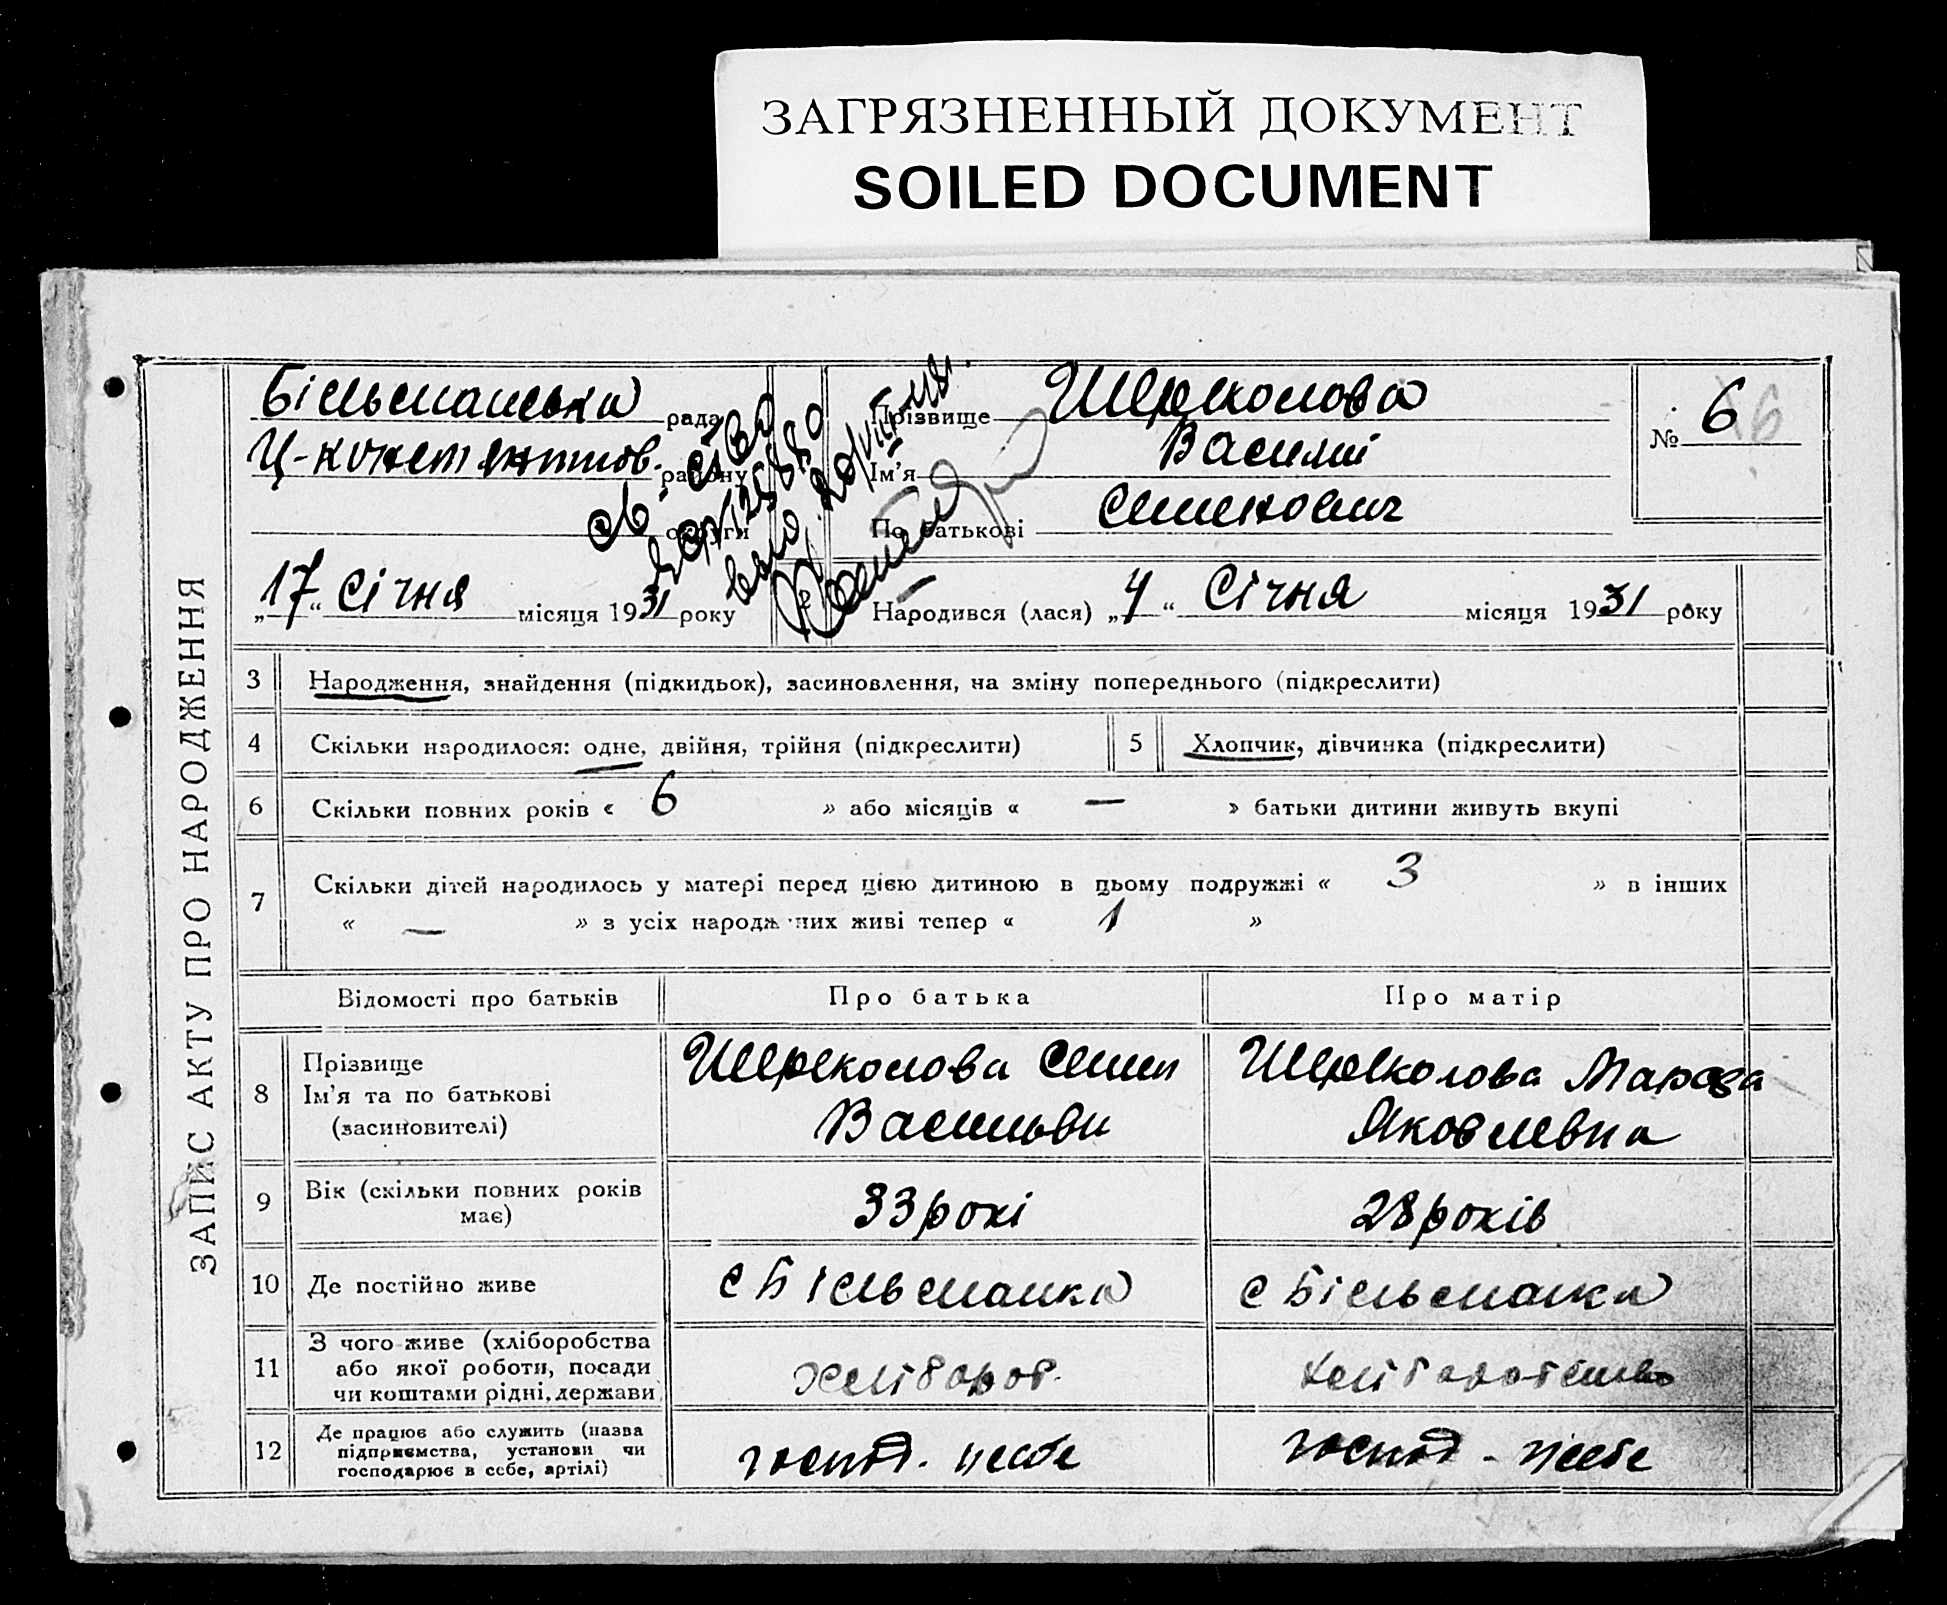 ЗАГРЯЗНЕННЫЙ ДОКУМЕНТ
SOILED DOCUMENT
ЗАПИС АКТУ ПРО НАРОДЖЕННЯ
Більманська рада
Ц-констянтинов. району
округи
„17“ Січня місяця 1931 року
Прізвище Шереколова
Ім'я Василій
По батькові Семенович
№ 6
Народився (лася) „4“ Січня місяця 1931 року
3 Народження, знайдення (підкидьок), засиновлення, на зміну попереднього (підкреслити)
4 Скільки народилося: одне, двійня, трійня (підкреслити)
5 Хлопчик, дівчинка (підкреслити)
6 Скільки повних років « 6 » або місяців « — » батьки дитини живуть вкупі
7 Скільки дітей народилось у матері перед цією дитиною в цьому подружжі « 3 » в інших
« — » з усіх народжених живі тепер « 1 »
Відомості про батьків Про батька Про матір
8 Прізвище
Ім'я та по батькові
(засиновителі)
Шереколова Семен
Васильви
Шереколова
Яковлевна
9 Вік (скільки повних років
має)
33 рокі
28 років
10 Де постійно живе
с Більманка
с Більманка
11 З чого живе (хліборобства
або якої роботи, посади
чи коштами рідні, держави
хлібороб.
хліборобство
12 Де працює або служить (назва
підприємства, установи чи
господарює в себе, артілі)
господ. у себе
господ - у себе